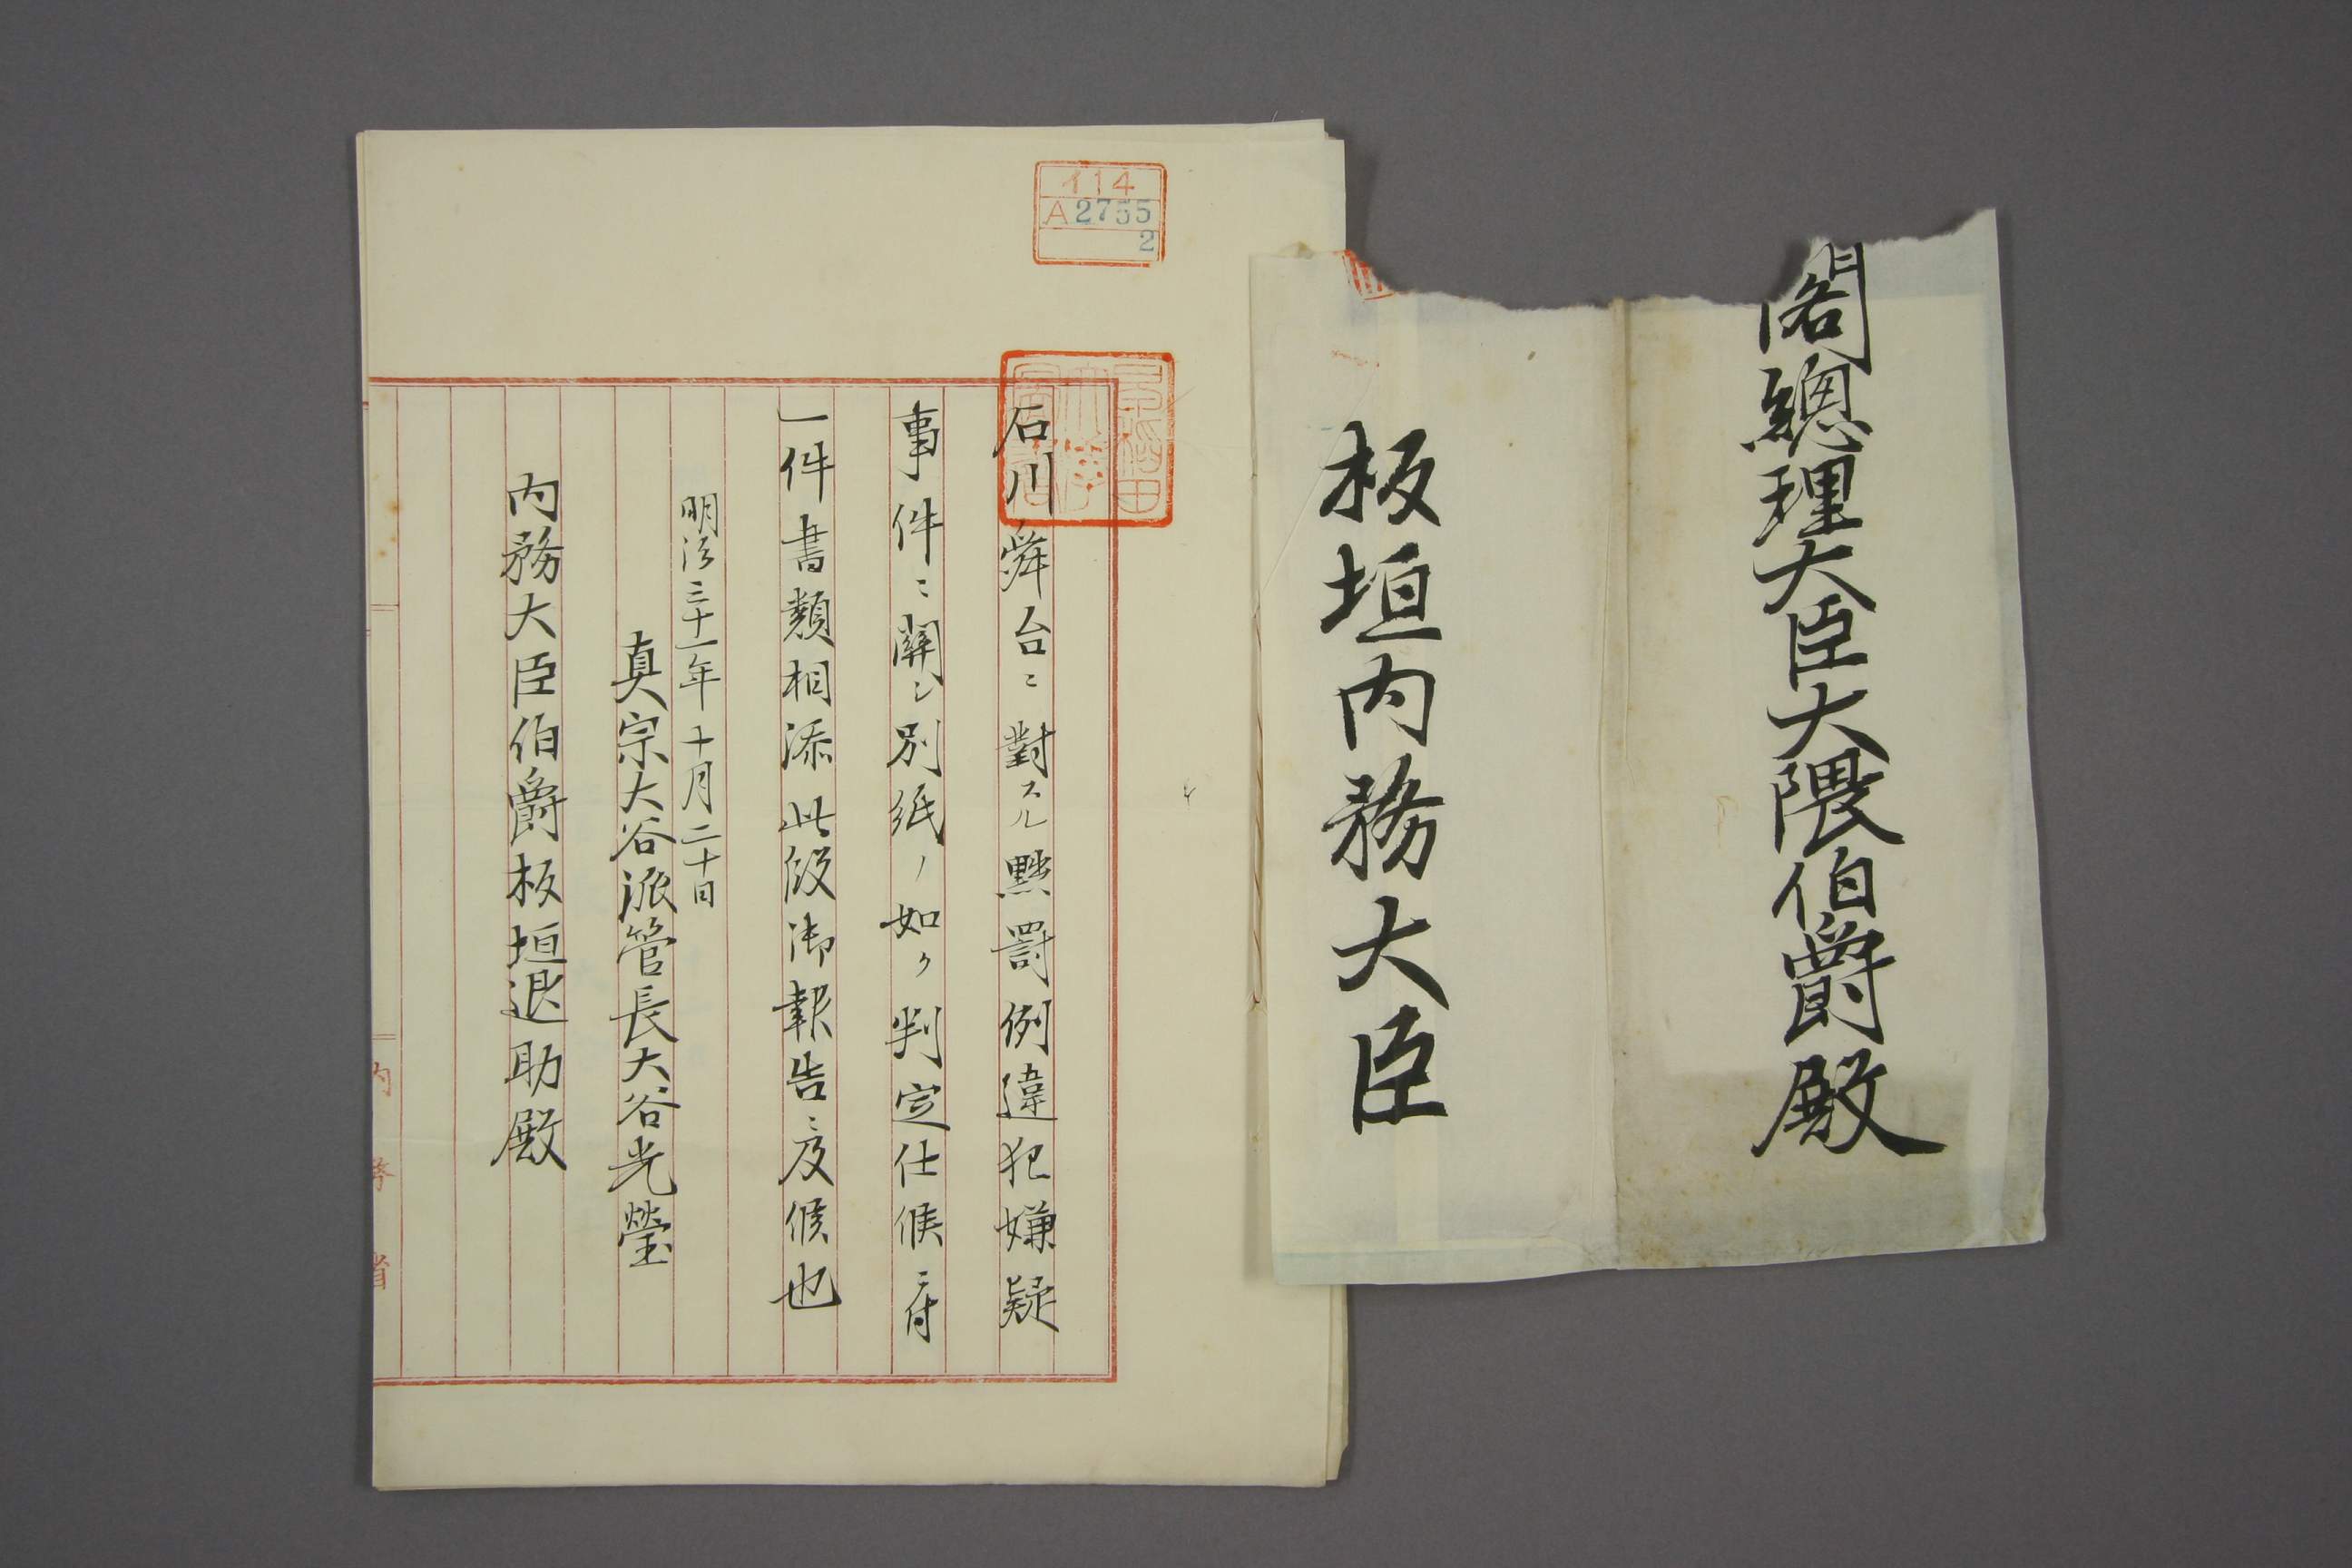 閣總理大臣大隈伯爵殿
板垣内務大臣
イ14
A2755
2
石川舜台ニ對スル黙罰例違犯嫌疑
事件ニ關シ別紙ノ如ク判定仕候ニ付
一件書類相添此段御報告ニ及候也
明治三十一年十月二十日
真宗大谷派管長大谷光瑩
内務大臣伯爵板垣退助殿
内務省